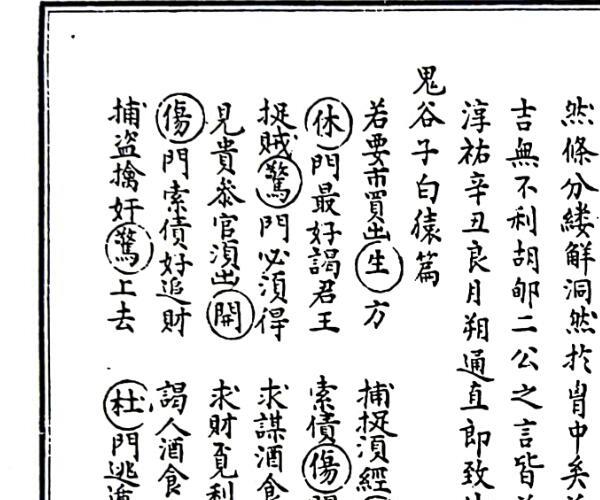 然條分縷解洞然於胷中矣
吉無不利胡郇二公之言皆
淳祐辛丑良月朔通直郎致
鬼谷子白猿篇
若要市買出生方 捕捉湏經
休門最好謁君王 索債傷
捉賊驚門必須得 求謀酒食
見貴叅官湏出開 求財覔利
傷門索債好追財 謁人酒食
捕盜擒奸驚上去 杜門逃